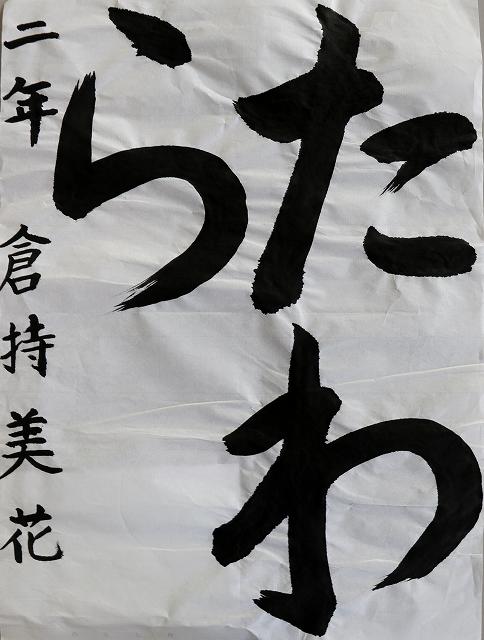 たわ
ら
二年 倉持美花